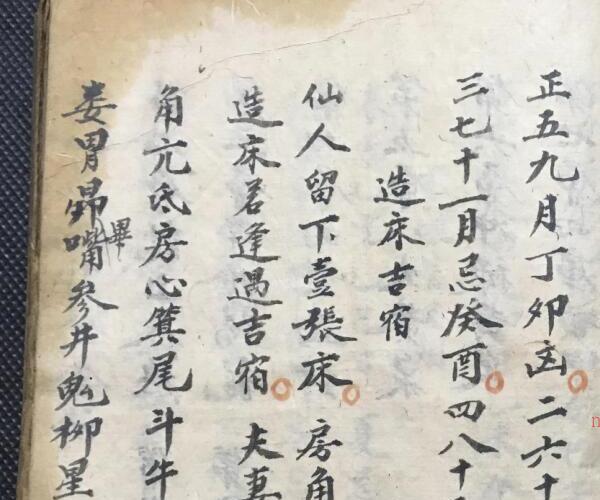 正五九月丁卯凶二六十
三七十一月忌癸酉四八十
造床吉宿
仙人留下壹張床房角
造床若逢遇吉宿夫妻
角亢氐房心箕尾斗牛
婁胃昴畢嘴參井鬼柳星